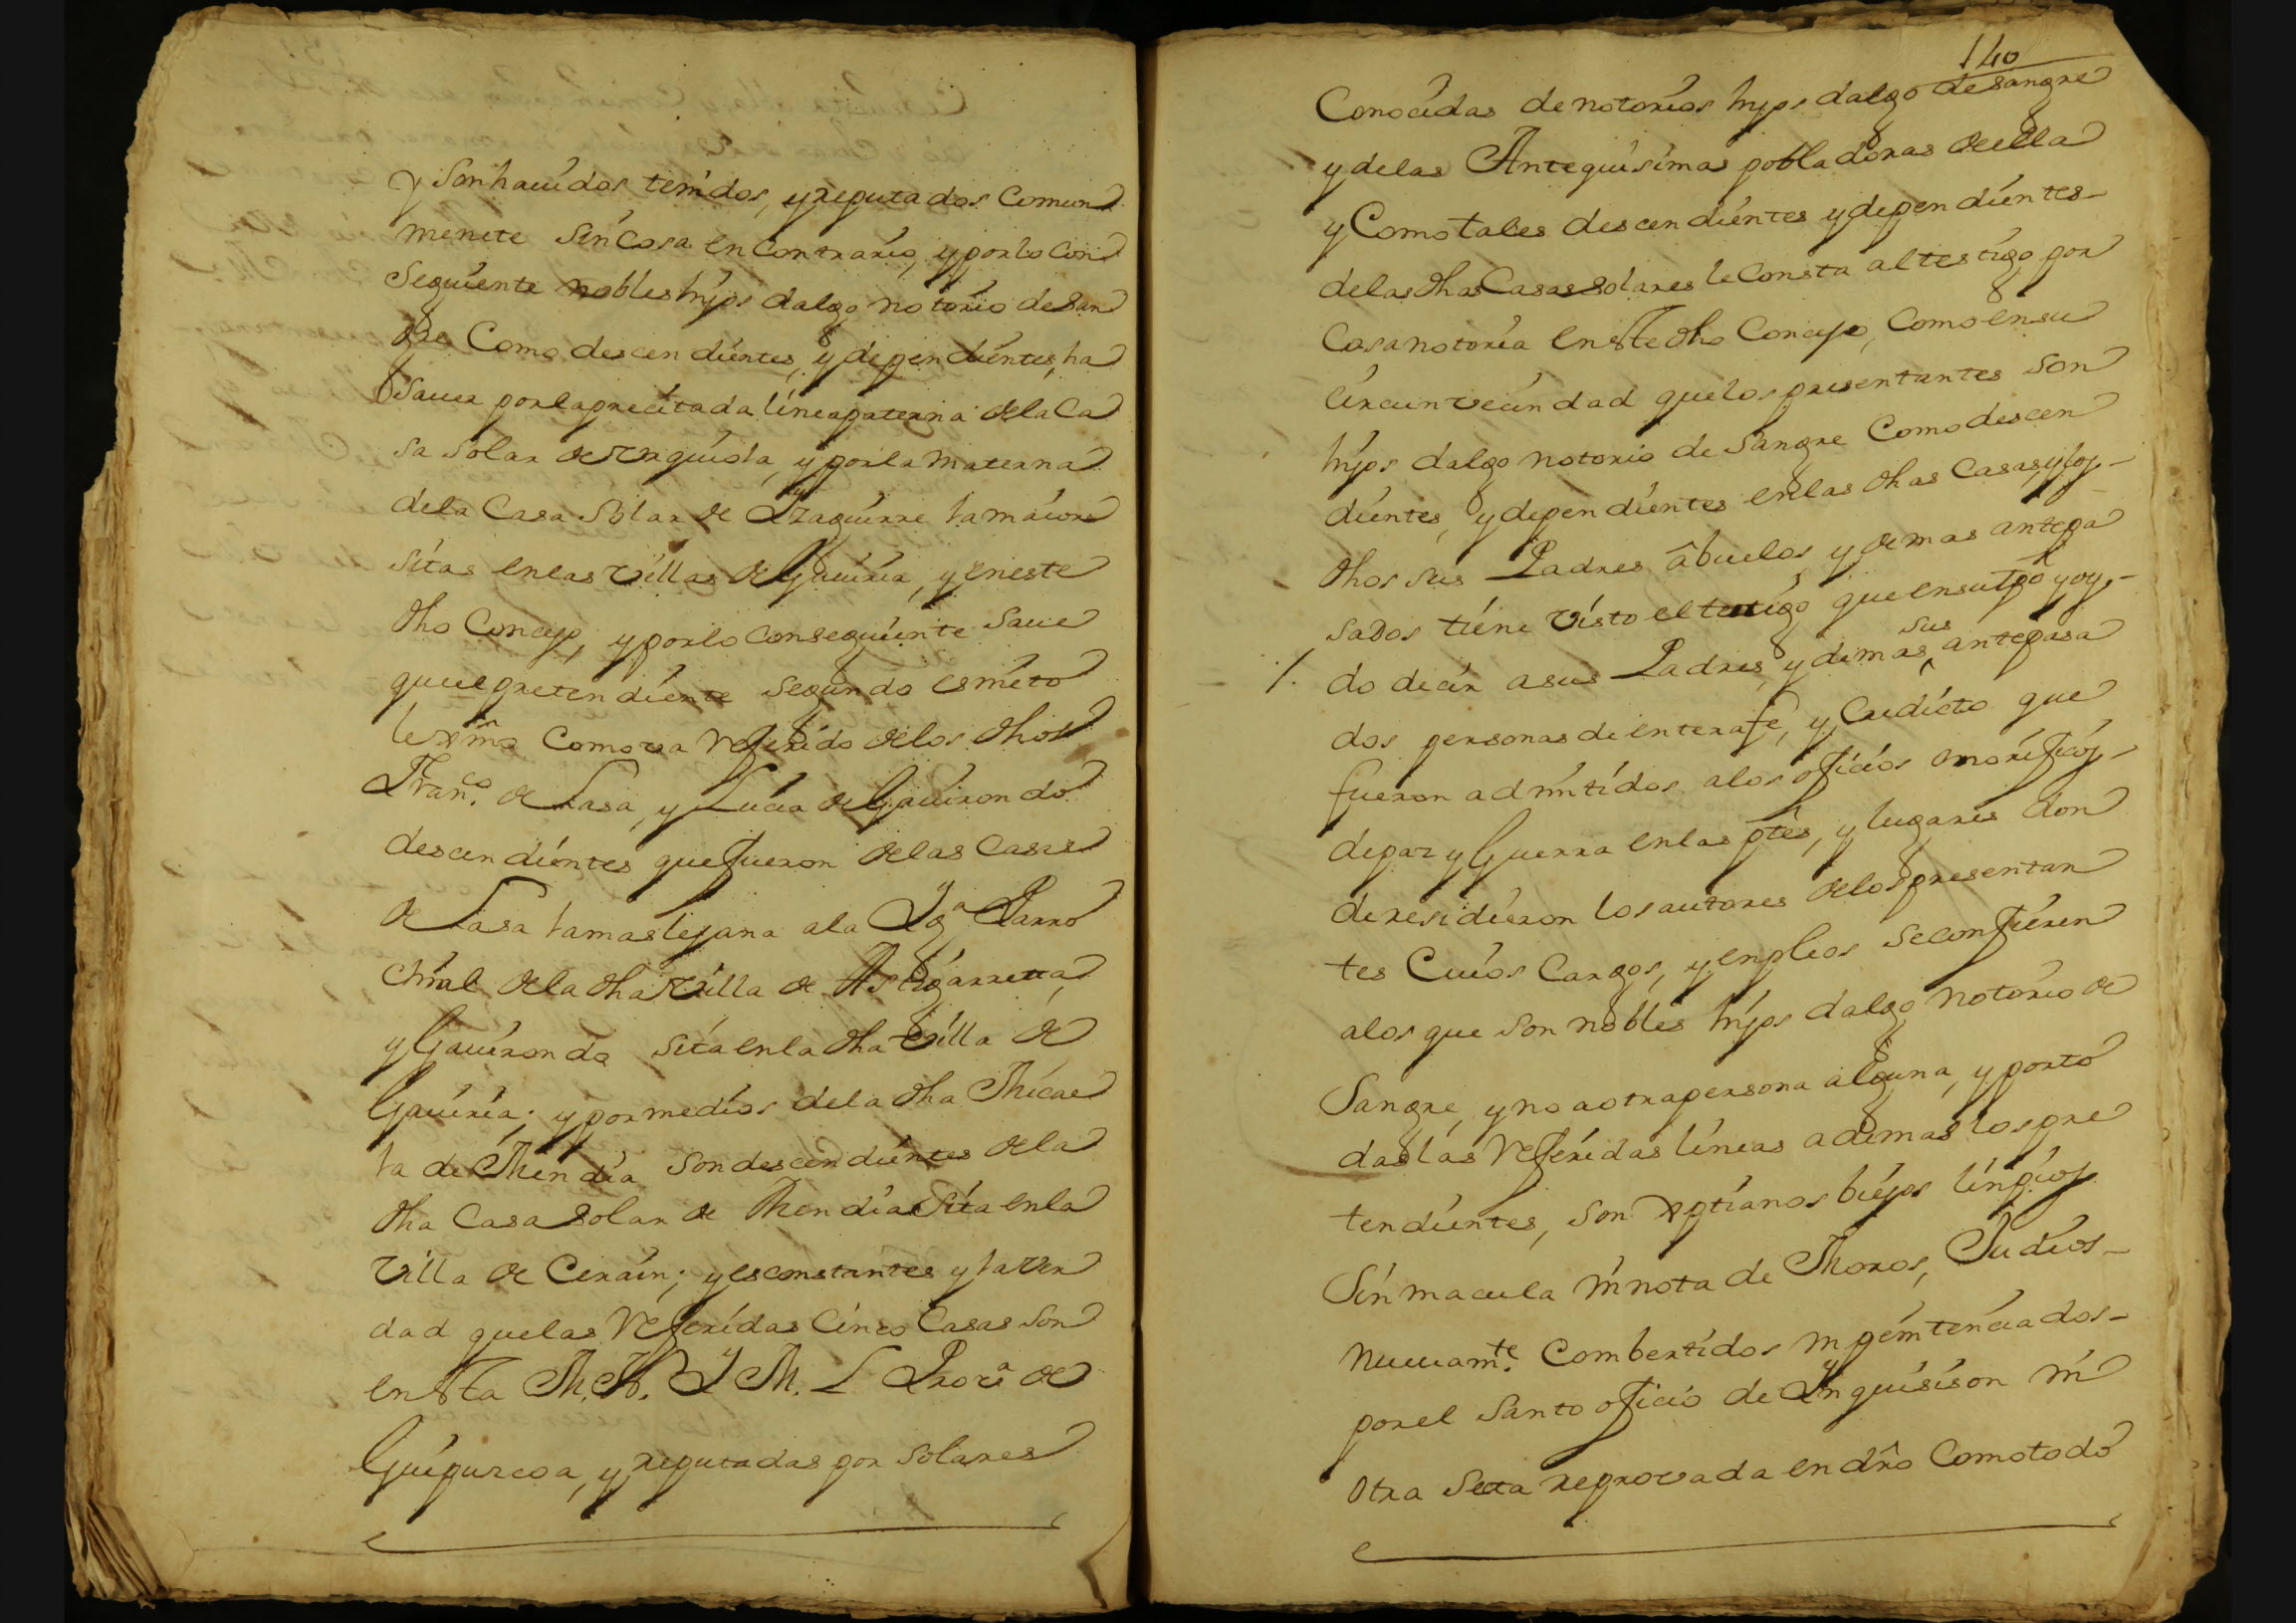 y Son hauidos tenidos, y reputados Comun
menete Sin Cosa en Contrario, y por lo Con
Seguiente nobles hijos dalgo notorio de San
gre Como descendientes, y dependientes, ha
Sauer por la precitada linea paterna de la Ca
sa Solar de Urquiola, y por la materna
de la Casa Solar de Yzaguirre la maior
Sitas en las Villas de Gauiria, y en este
dho Concejo, y por lo Conseguiente Saue
que el pretendiente Segundo es nieto
lexmo Como va Referido de los dhos
Franco. de Lasa, y Lucia de Gauirondo
descendientes que fueron de las Casas
de Lasa la mas lejana a la Yga Parro
chial de la dha Villa de Astigarreta,
y Gauirondo Sita en la dha Villa de
Gauiria; y por medios de la dha Micae
la de Mendia Son descendientes de la
dha Casa Solar de Mendia Sita en la
Villa de Cerain; y es constantes y la Ver
dad que las Referidas Cinco Casas Son
en Esta M. N. Y M. L Prova de
Guipuzcoa, y reputadas por Solares
140
Conocidas de notorios hijos dalgo de Sangre
y de las Antequisimas pobladoras de ella
y Como tales descendientes y dependientes
de las dhas Casas Solares le Consta al testigo por
Cosa notoria en Este dho Concejo, Como en su
Circunvecindad que los presentantes Son
hijos dalgo notorio de Sangre Como descen
dientes, y dependientes en las dhas Casas, y los
dhos sus Padres abuelos, y demas antepa
sados tiene Visto el testigo, que en su tpo y oy
do decir a sus Padres, y demas sus antepasa
dos personas de entera fe, y Credicto que
fueron admitidos a los oficios onorificos
de paz y Guerra en las ptes, y lugares don
de residieron los autores de los presentan
tes Cuios Cargos, y enpleos Se confieren
a los que Son nobles hijos dalgo notorio de
Sangre, y no a otra persona alguna, y por to
das las Referidas lineas ademas los pre
tendientes, Son Xptianos biejos linpios
Sin macula ni nota de Moros, Judios
nuuamte. Combertidos ni penitenciados
por el Santo oficio de Ynquisision ni
Otra Secta reprovada en dro Como todo